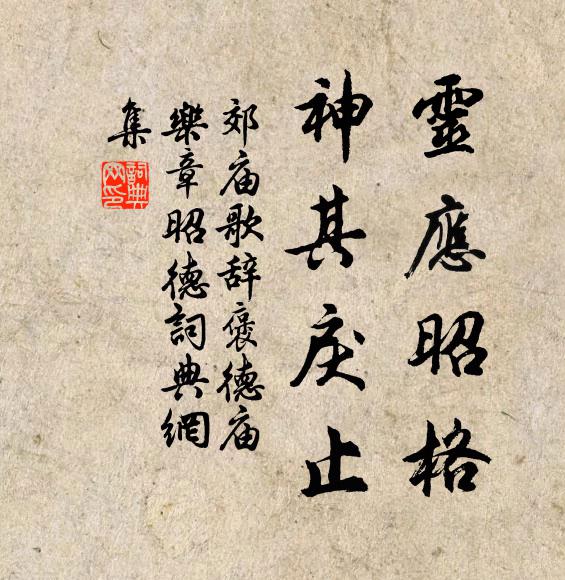 靈應昭格
神其戾止
郊庙歌辞褒德庙
樂章昭德詞典網
集
詞典網印